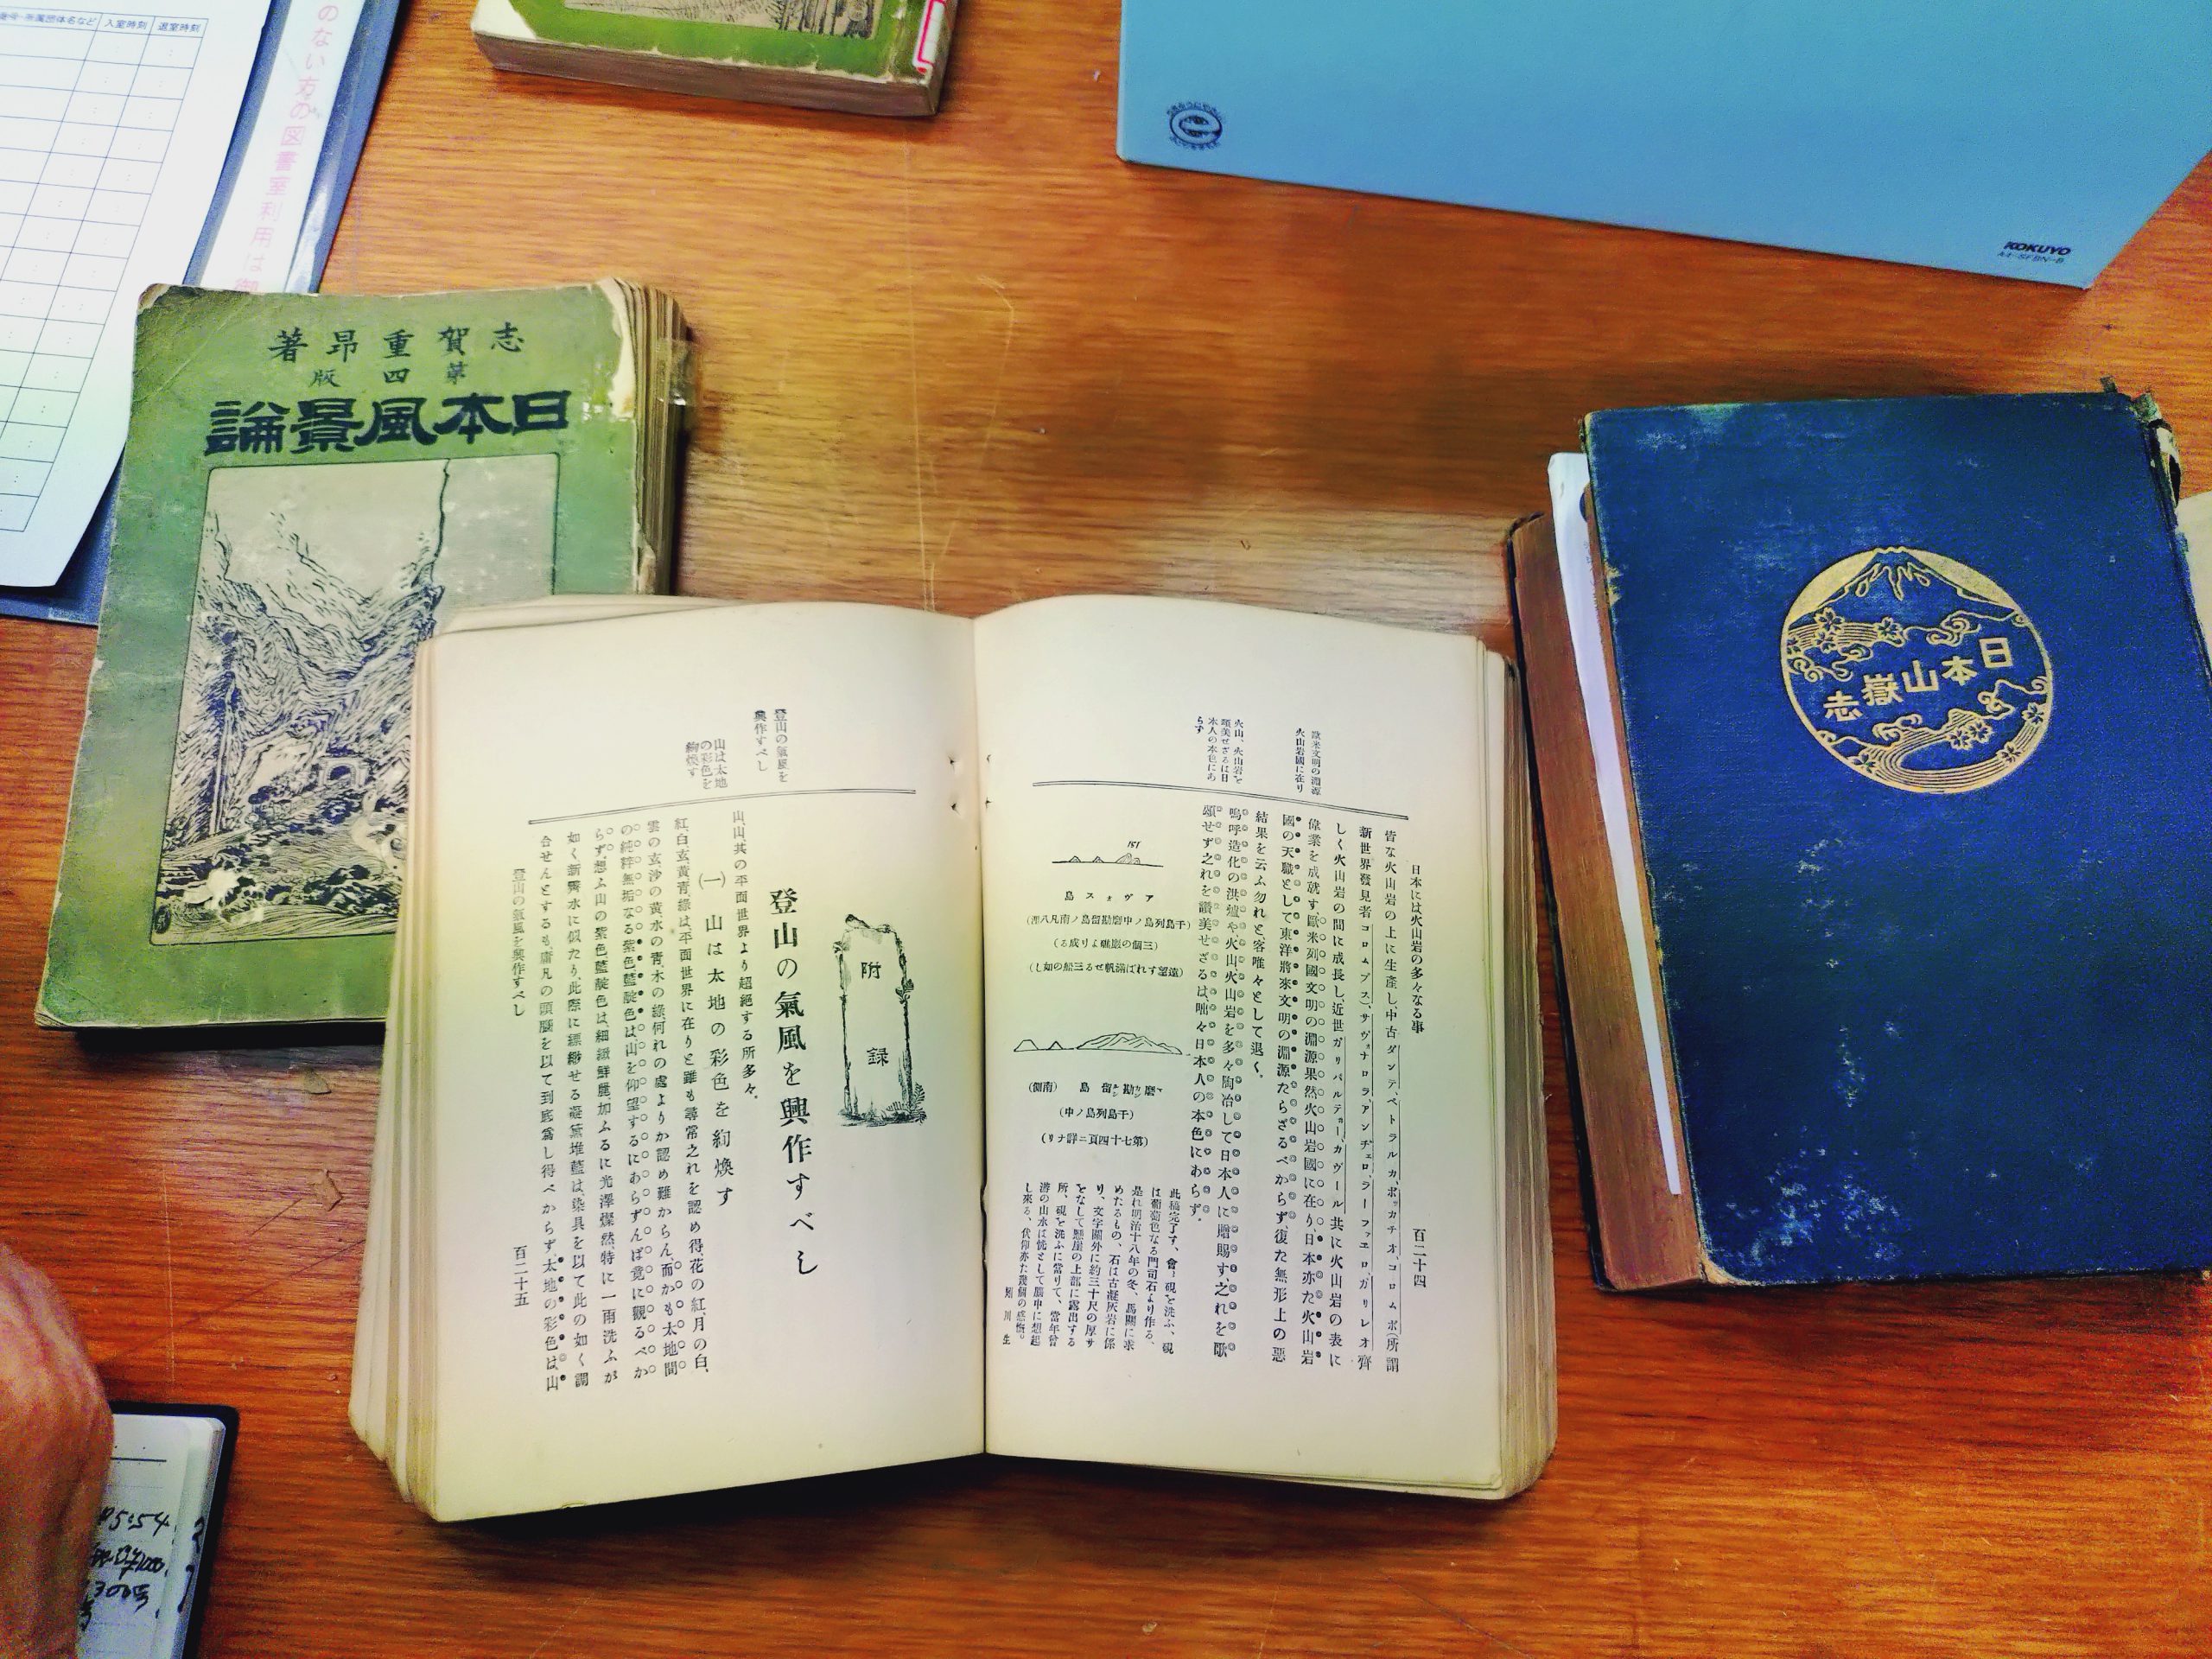 入室時刻
退室時刻
のない方の図書室利用は御
KOKUYO
A4-SFBN-B
志賀重昂著
第四版
日本風景論
日本山嶽志
日本には火山岩の多々なる事
百二十四
歐米文明の淵源
火山岩國に在り
火山、火山岩を
頌美せざるは日
本人の本色にあ
らず
皆な火山岩の上に生產し、中古ダンテ、ペトラルカ、ボッカチオ、コロムボ(所謂
新世界發見者コロムブス)、サヴォナロラ、アンヂェロ、ラーファエロ、ガリレオ齊
しく火山岩の間に成長し、近世ガリバルヂー、カヴール共に火山岩の表に
偉業を成就す、歐米列國文明の淵源果然火山岩國に在り、日本亦た火山岩
國の天職として東洋將來文明の淵源たらざるべからず、復た無形上の惡
結果を云ふ勿れと、客唯々として退く。
嗚呼造化の洪爐や、火山、火山岩を多々陶冶して日本人に贈賜す、之れを歌
頌せず之れを讃美せざるは、咄々日本人の本色にあらず。
アヴォス島
(千島列島ノ中磨勘留島ノ南凡八浬)
(三個の巖礁より成る)
(遠望すれば滿帆せる三船の如し)
磨勘留島 (南側)
(千島列島ノ中)
(第七十四頁ニ詳ナリ)
此稿完了す、會〻硯を洗ふ、硯
は葡萄色なる門司石より作る、
是れ明治十八年の冬、馬關に求
めたるもの、石は古凝灰岩に係
り、文字關外に約三十尺の厚サ
をなして懸崖の上部に露出する
所、硯を洗ふに當りて、當年曾
游の山水は恍として腦中に想起
し來る、伏仰亦た幾個の感慨。
川生
附錄
登山の氣風を興作すべし
登山の氣風を
興作すべし
山、山、其の平面世界より超絕する所多々。
(一) 山は太地の彩色を絢煥す
山は太地
の彩色を
絢煥す
紅、白、玄、黃、青、綠は、平面世界に在りと雖も尋常之れを認め得、花の紅、月の白、
雲の玄、沙の黃、水の青、木の綠、何れの處よりか認め難からん、而かも太地間
の純粹無垢なる紫色、藍靛色は、山を仰望するにあらずんば竟に觀るべか
らず、想ふ山の紫色、藍靛色は、細緻鮮麗加ふるに光澤燦然、特に一雨洗ふが
如く新霽水に似たり、此際に縹緲せる凝黛堆藍は、染具を以て此の如く調
合せんとするも、庸凡の頭腦を以て到底爲し得べからず、太地の彩色は、山
登山の氣風を興作すべし
百二十五